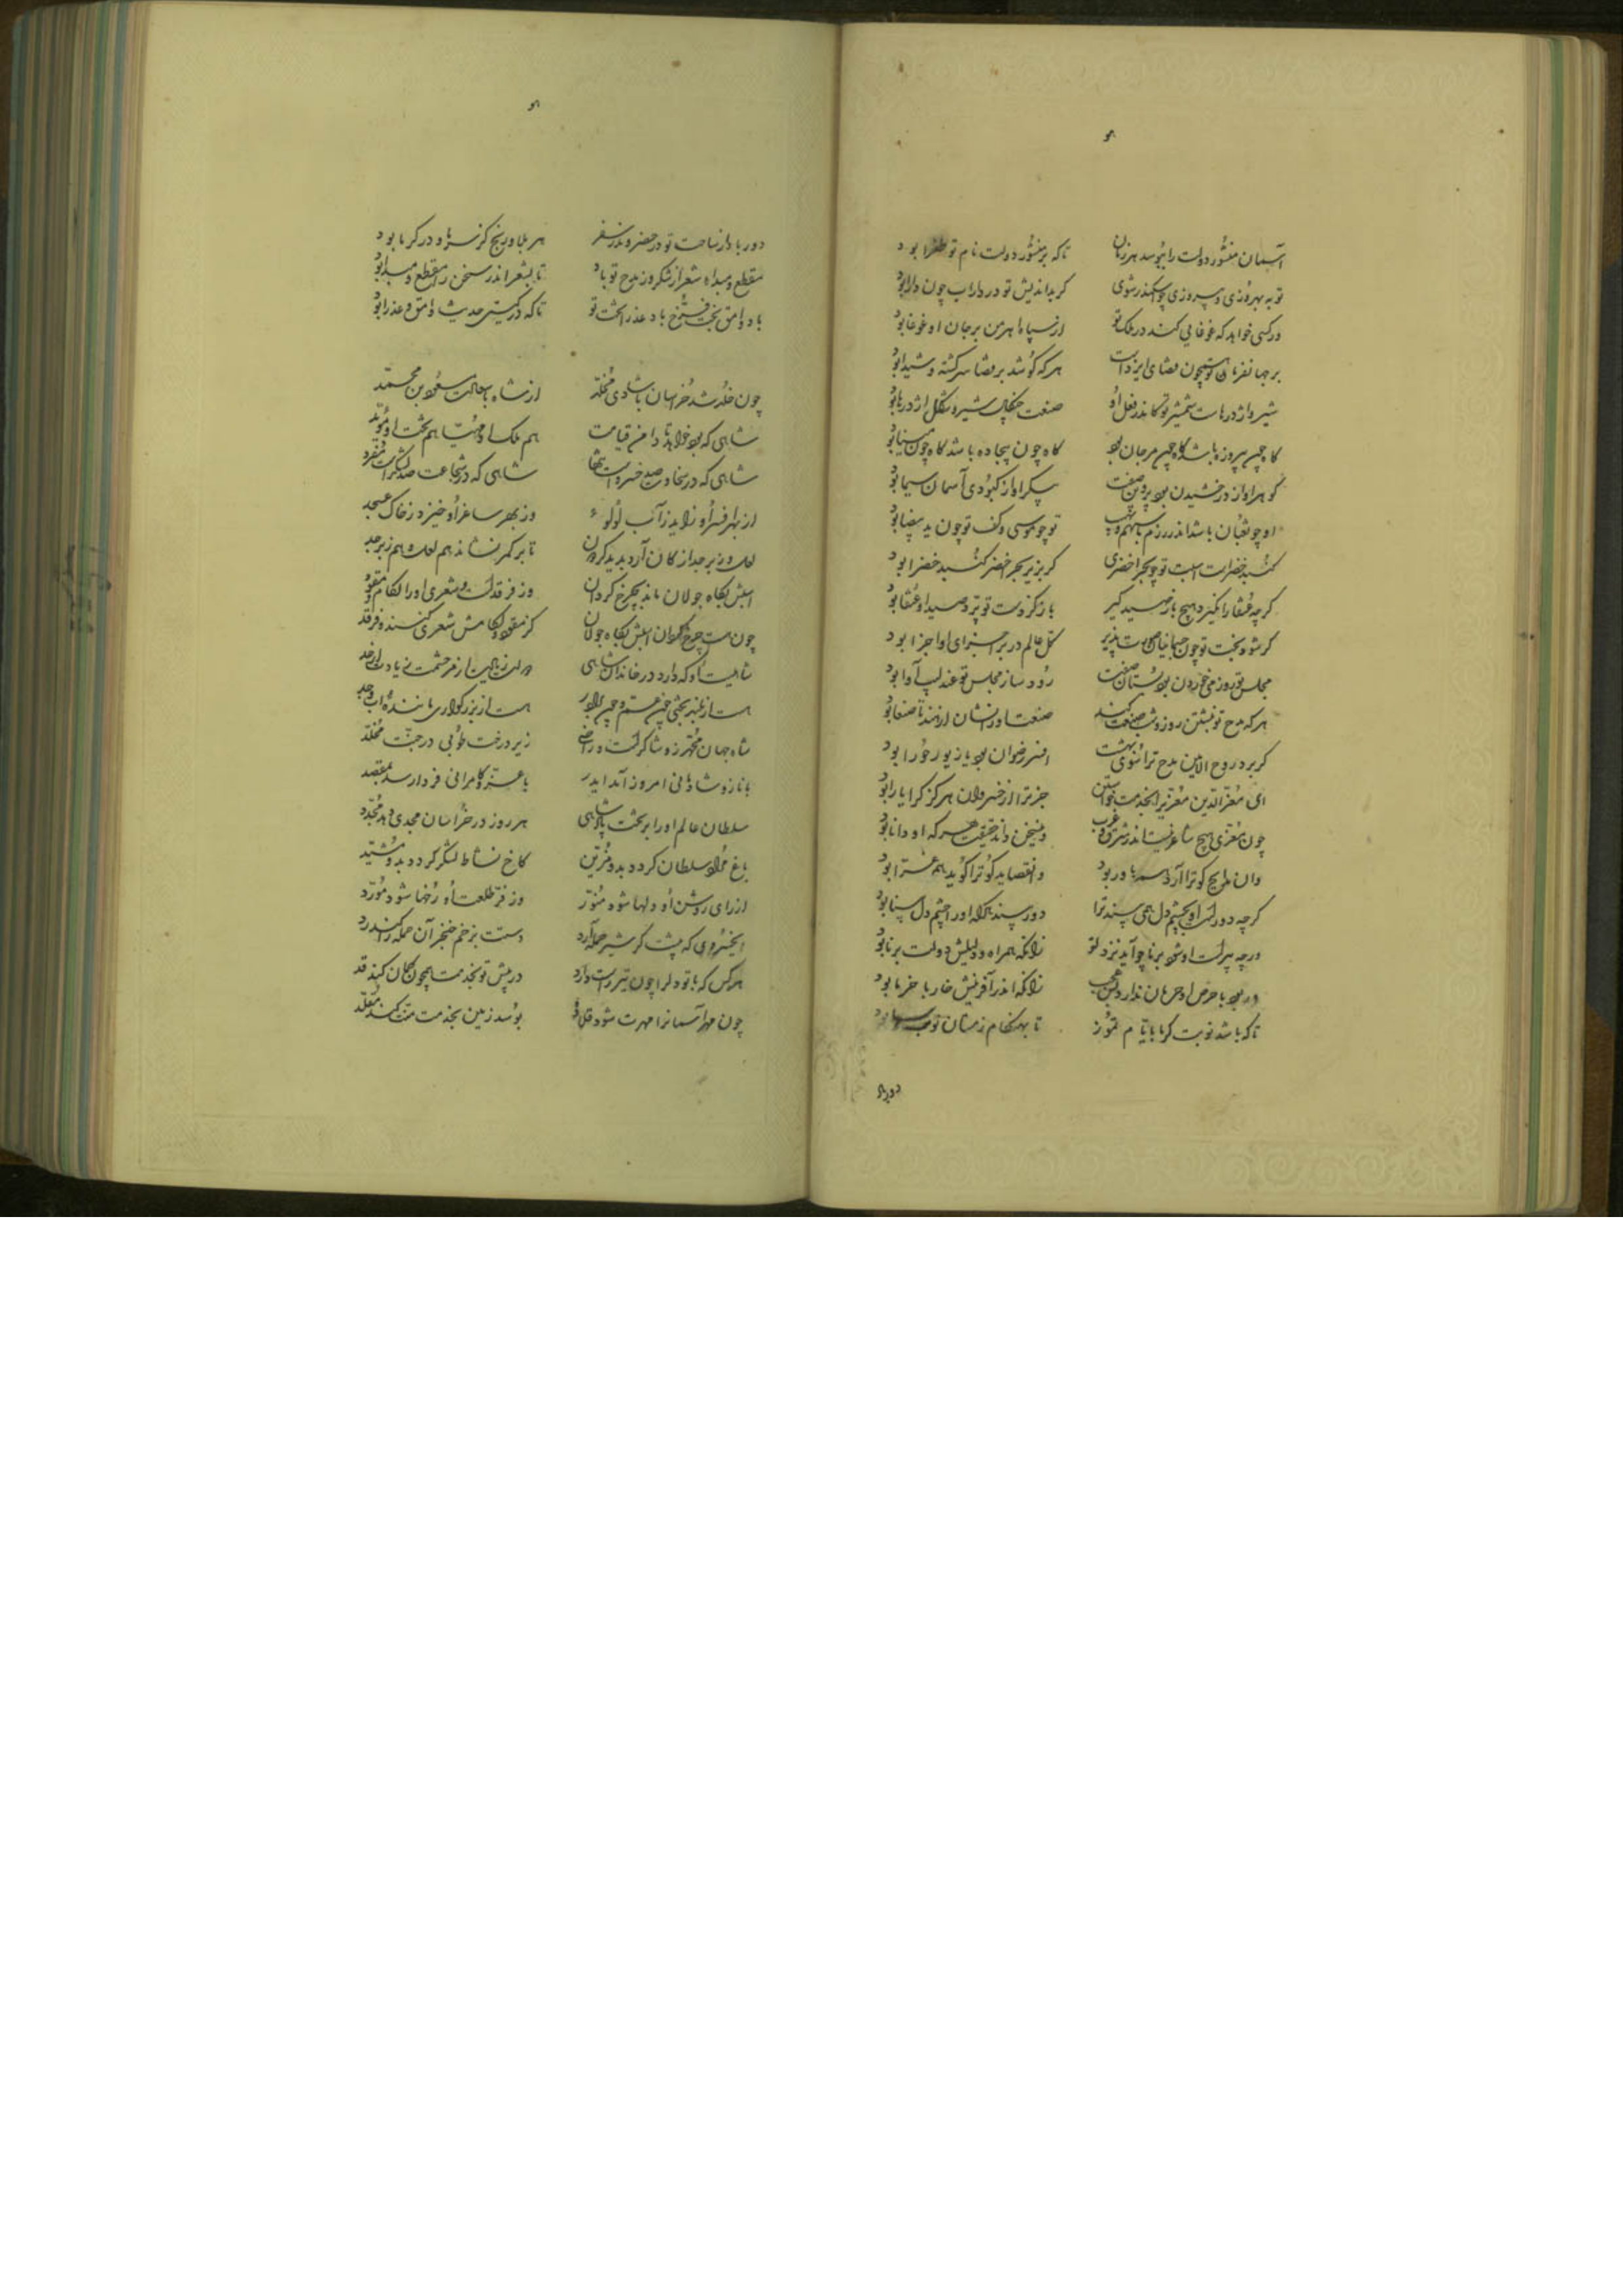 آسمان منشور دولت را ببوسد هر زمان تا که بر منشور دولت نام تو طغرا بود
تو به بهروزی و پیروزی چو اسکندر شوی گر بداندیش تو در داراب چون دارا بود
ور کسی خواهد که غوغایی کند در ملک تو از سپاه اهرمن بر جان او غوغا بود
بر جهان فرمان تو همچون قضای ایزدست هر که کوشد بر قضا سرگشته و شیدا بود
شیر و اژدرهاست شمشیر تو کاندر فعل او صنعت چنگال شیر و شکل اژدرها بود
گاه چون پیروزه باشد گاه چون مرجان بود گاه چون بیجاده باشد گاه چون مینا بود
گوهر او از درخشیدن بود پروین صفت پیکر او از کبودی آسمان سیما بود
او چو ثعبان باشد اندر رزم با سهم و نهیب تو چو موسی و کف تو چون ید بیضا بود
گنبد خضراست اسبت تو چو بحر اخضری گر بزیر بحر اخضر گنبد خضرا بود
گرچه عنقا را نگیرد هیچ باز صید گیر باز کز دست تو پرد صید او عنقا بود
گر شود بخت تو چون جهانیان صورت پذیر کل عالم در بر اجزای او اجزا بود
مجلس تو روز می خوردن بود بستان صفت رود ساز مجلس تو عندلیب آوا بود
هر که مدح تو نبشتن روز و شب صنعت کند صنعت او را نشان از هند تا صنعا بود
گر برد روح الامین مدح ترا سوی بهشت افسر رضوان بود یا زیور حورا بود
ای معزالدین معزی را بخدمت خواستن جز ترا از خسروان هرگز کرا یارا بود
چون معزی هیچ شاعر نیست اندر شرق و غرب وین سخن داند حقیقت هر که او دانا بود
وان مدایح کو ترا آرد همه باور بود وان قصاید کو ترا گوید همه غرا بود
گرچه دورست او بچشم دل همی بیند ترا دور بیند آنکه او را چشم دل بینا بود
ورچه پیرست او شود برنا چو آید نزد تو زانکه همراه و دلیلش دولت برنا بود
ور بود با حرص او حرمان ندارد بس عجب زانکه اندر آفرینش خار با خرما بود
تا که باشد نوبت گرما بایام تموز تا بهنگام زمستان نوبت سرما بود
دور باد
دور باد از ساحت تو در حضر و در سفر هر بلا و رنج کز سرما و در گرما بود
مقطع و مبداء شعر از شکر و ز مدح تو باد تا بشعر اندر سخن را مقطع و مبدا بود
باد وامق بخت فرخ باد عذرا تخت تو تا که در گیتی حدیث وامق و عذرا بود
چون خلد شد خراسان با شادی مخلد از شاه با عدالت مسعود بن محمد
شاهی که بود خواهد تا دامن قیامت هم ملک او مهیا هم بخت او مؤید
شاهی که در سخاوت صد خسروست تنها شاهی که در شجاعت صد لشکرست مفرد
از بهر افسر او زاید ز آب لولوء وز بهر ساغر او خیزد ز خاک عسجد
لعل و زبرجد از کان آرد پدید گردون تا بر کمر نشاند هم لعل و هم زبرجد
اسبش بگاه جولان ماند بچرخ گردان وز فرقدست و شعری او را لگام و مقود
چون هست چرخ گردان اسبش بگاه جولان کز مقود و لگامش شعری کنند و فرقد
شاهیست او که دارد در خاندان شاهی
هست از بلند بختی چون عم و چون برادر هست از بزرگواری مانندهٔ اب و جد
شاه جهان محمد زو شاکرست و راضی زیر درخت طوبی در جنت مخلد
با ناز و شادمانی امروز آمد ایدر با عز و کامرانی فردا رسد بمقصد
سلطان عالم او را بر تخت پادشاهی هر روز در خراسان مجدی دهد مجدد
باغ مراد سلطان گردد بدو مزین کاخ نشاط لشکر گردد بدو مشید
از رای روشن او دلها شود منور وز فر طلعت او رخها شود مورد
ای خسروی که پیشت گر شیر حمله آرد دستت بزخم خنجر آن حمله را کند رد
هر کس که با تو دل را چون تیر راست دارد در پیش تو بخدمت همچون کمان کند قد
چون مهر آسمان را مهرت شود قلاده بوسد زمین بخدمت منت کند مقلد